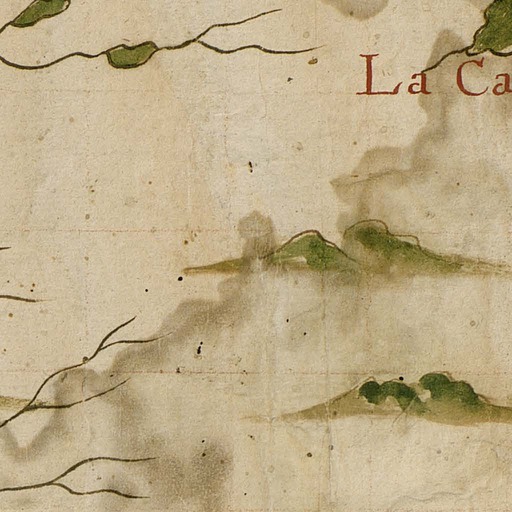 La Ca